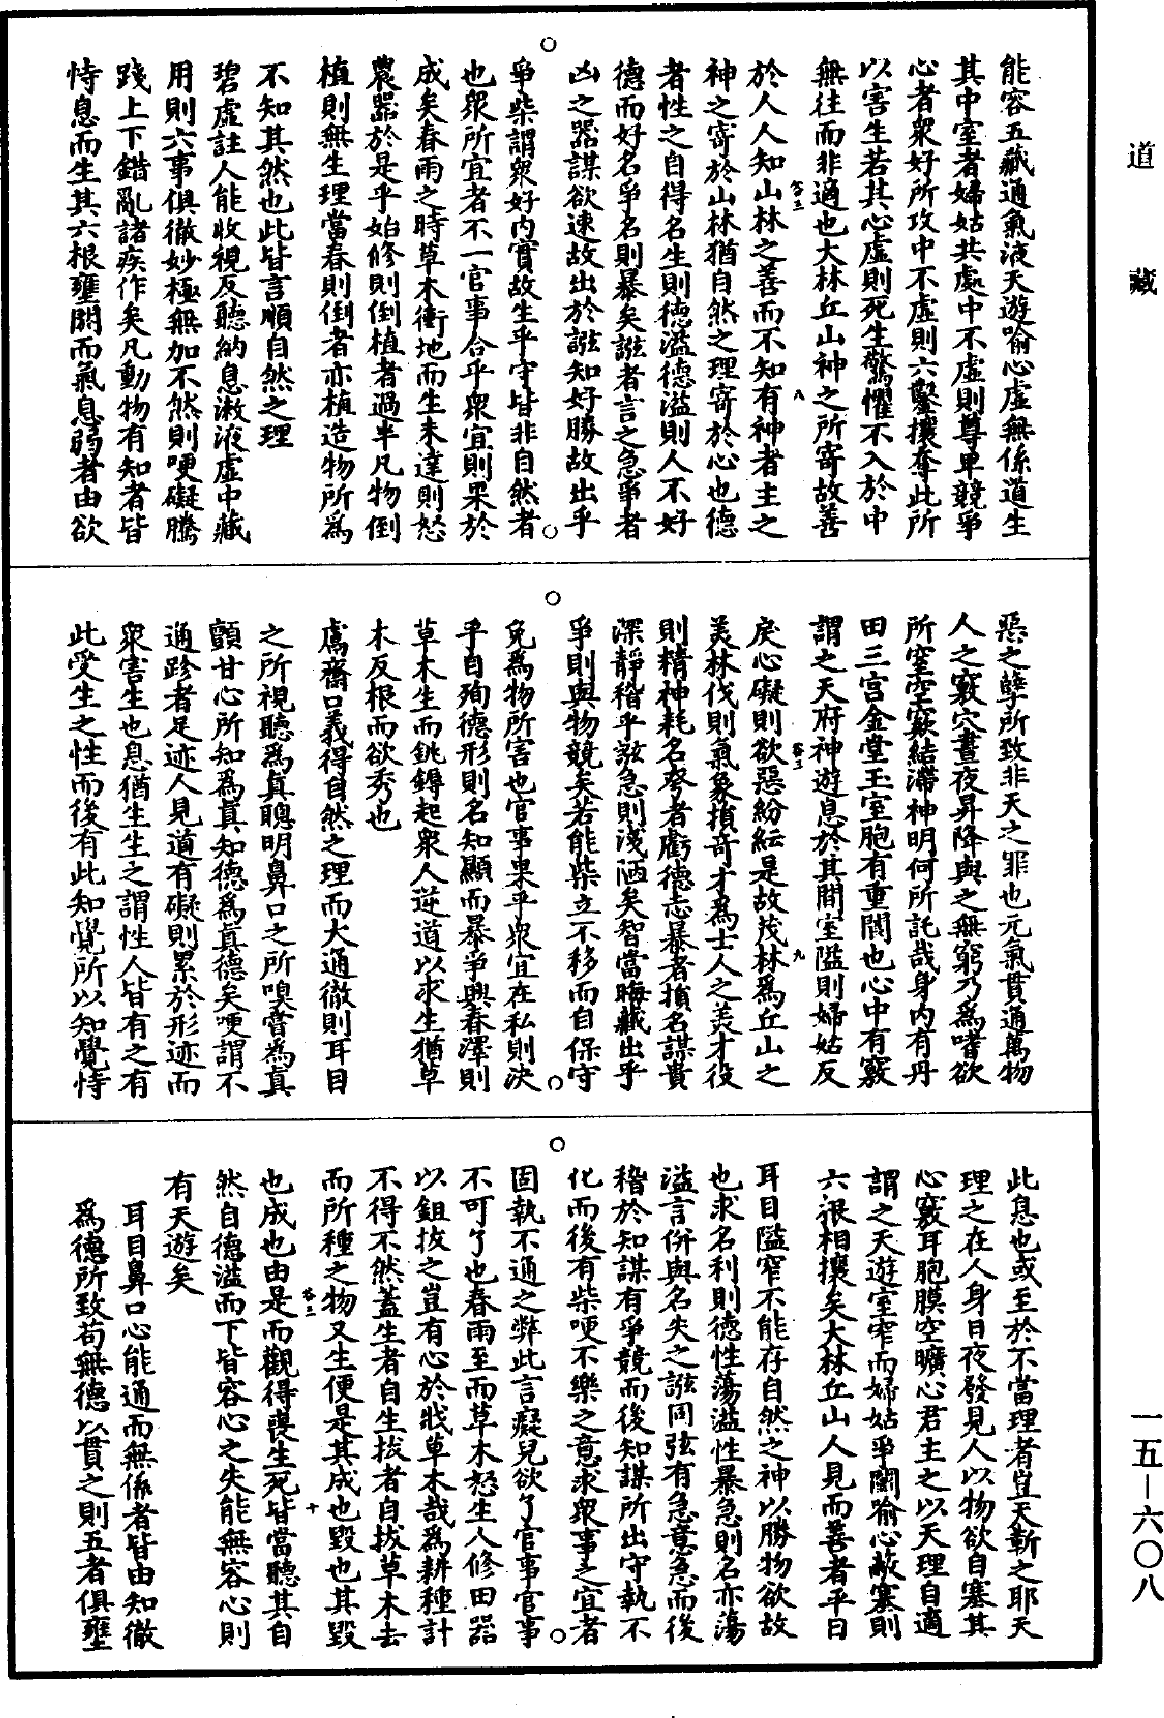 道藏
能容五藏通氣液天遊喻心虛無係道生
其中室者婦姑共處中不虛則尊卑競爭
心者眾好所攻中不虛則六鑿攘奪此所
以害生若其心虛則死生驚懼不入於中
無往而非適也大林丘山神之所寄故善
於人人知山林之善而不知有神者主之
神之寄於山林猶自然之理寄於心也德
者性之自得名生則德溢德溢則人不好
德而好名爭名則暴矣誸者言之急爭者
凶之器謀欲速故出於誸知好勝故出乎
爭柴謂眾好內實故生乎守皆非自然者
也眾所宜者不一官事合乎眾宜則果於
成矣春雨之時草木衝地而生未達則怒
農器於是乎始修則倒植者過半凡物倒
植則無生理當春則倒者亦植造物所為
不知其然也此皆言順自然之理
碧虛註人能收視反聽納息漱液虛中藏
用則六事俱徹妙極無加不然則哽礙騰
踐上下錯亂諸疾作矣凡動物有知者皆
恃息而生其六根壅閼而氣息弱者由欲
惡之孽所致非天之罪也元氣貫通萬物
人之竅穴晝夜昇降與之無窮乃為嗜欲
所窒空竅結滯神明何所託哉身內有丹
田三宮金堂玉室胞有重閬也心中有竅
謂之天府神遊息於其間室隘則婦姑反
戾心礙則欲惡紛紜是故茂林為丘山之
美林伐則氣象損奇才為士人之美才役
則精神耗名夸者虧德志暴者損名謀貴
深靜稽乎誸急則淺陋矣智當晦藏出乎
爭則與物競矣若能柴立不移而自保守
免為物所害也官事果乎眾宜在私則決
乎自殉德形則名知顯而暴爭興春澤則
草木生而銚鎒起眾人逆道以求生猶草
木反根而欲秀也
鬳齋口義得自然之理而大通徹則耳目
之所視聽為真聰明鼻口之所嗅嘗為真
顫甘心所知為真知德為真德矣哽謂不
通跈者足迹人見道有礙則累於形迹而
眾害生也息猶生生之謂性人皆有之有
此受生之性而後有此知覺所以知覺恃
此息也或至於不當理者豈天靳之耶天
理之在人身日夜發見人以物欲自塞其
心竅耳胞膜空曠心君主之以天理自適
謂之天遊室窄而婦姑爭鬭喻心蔽塞則
六根相攘矣大林丘山人見而善者平日
耳目隘窄不能存自然之神以勝物欲故
也求名利則德性蕩溢性暴急則名亦蕩
溢言併與名失之誸同弦有急意急而後
稽於知謀有爭競而後知謀所出守執不
化而後有柴哽不樂之意求眾事之宜者
固執不通之弊此言癡兒欲了官事官事
不可了也春雨至而草木怒生人修田器
以鉏拔之豈有心於戕草木哉為耕種計
不得不然蓋生者自生拔者自拔草木去
而所種之物又生便是其成也毀也其毀
也成也由是而觀得喪生死皆當聽其自
然自德溢而下皆容心之失能無容心則
有天遊矣
耳目鼻口心能通而無係者皆由知徹
為德所致苟無德以貫之則五者俱壅
一五—六〇八